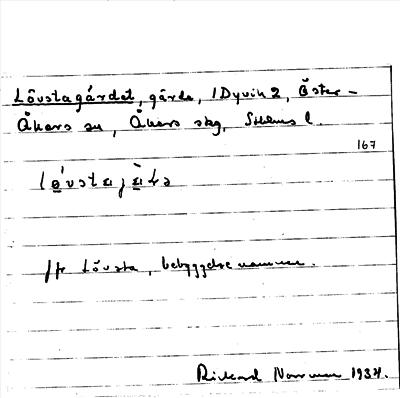 Lövstagärdet, gärde, 1 Dyvik 2, Öster-
Åkers sn, Åkers skg, Sthlms l.
167
fr Lövsta, bebyggelsenamn.
Rickard Norrman 1934.